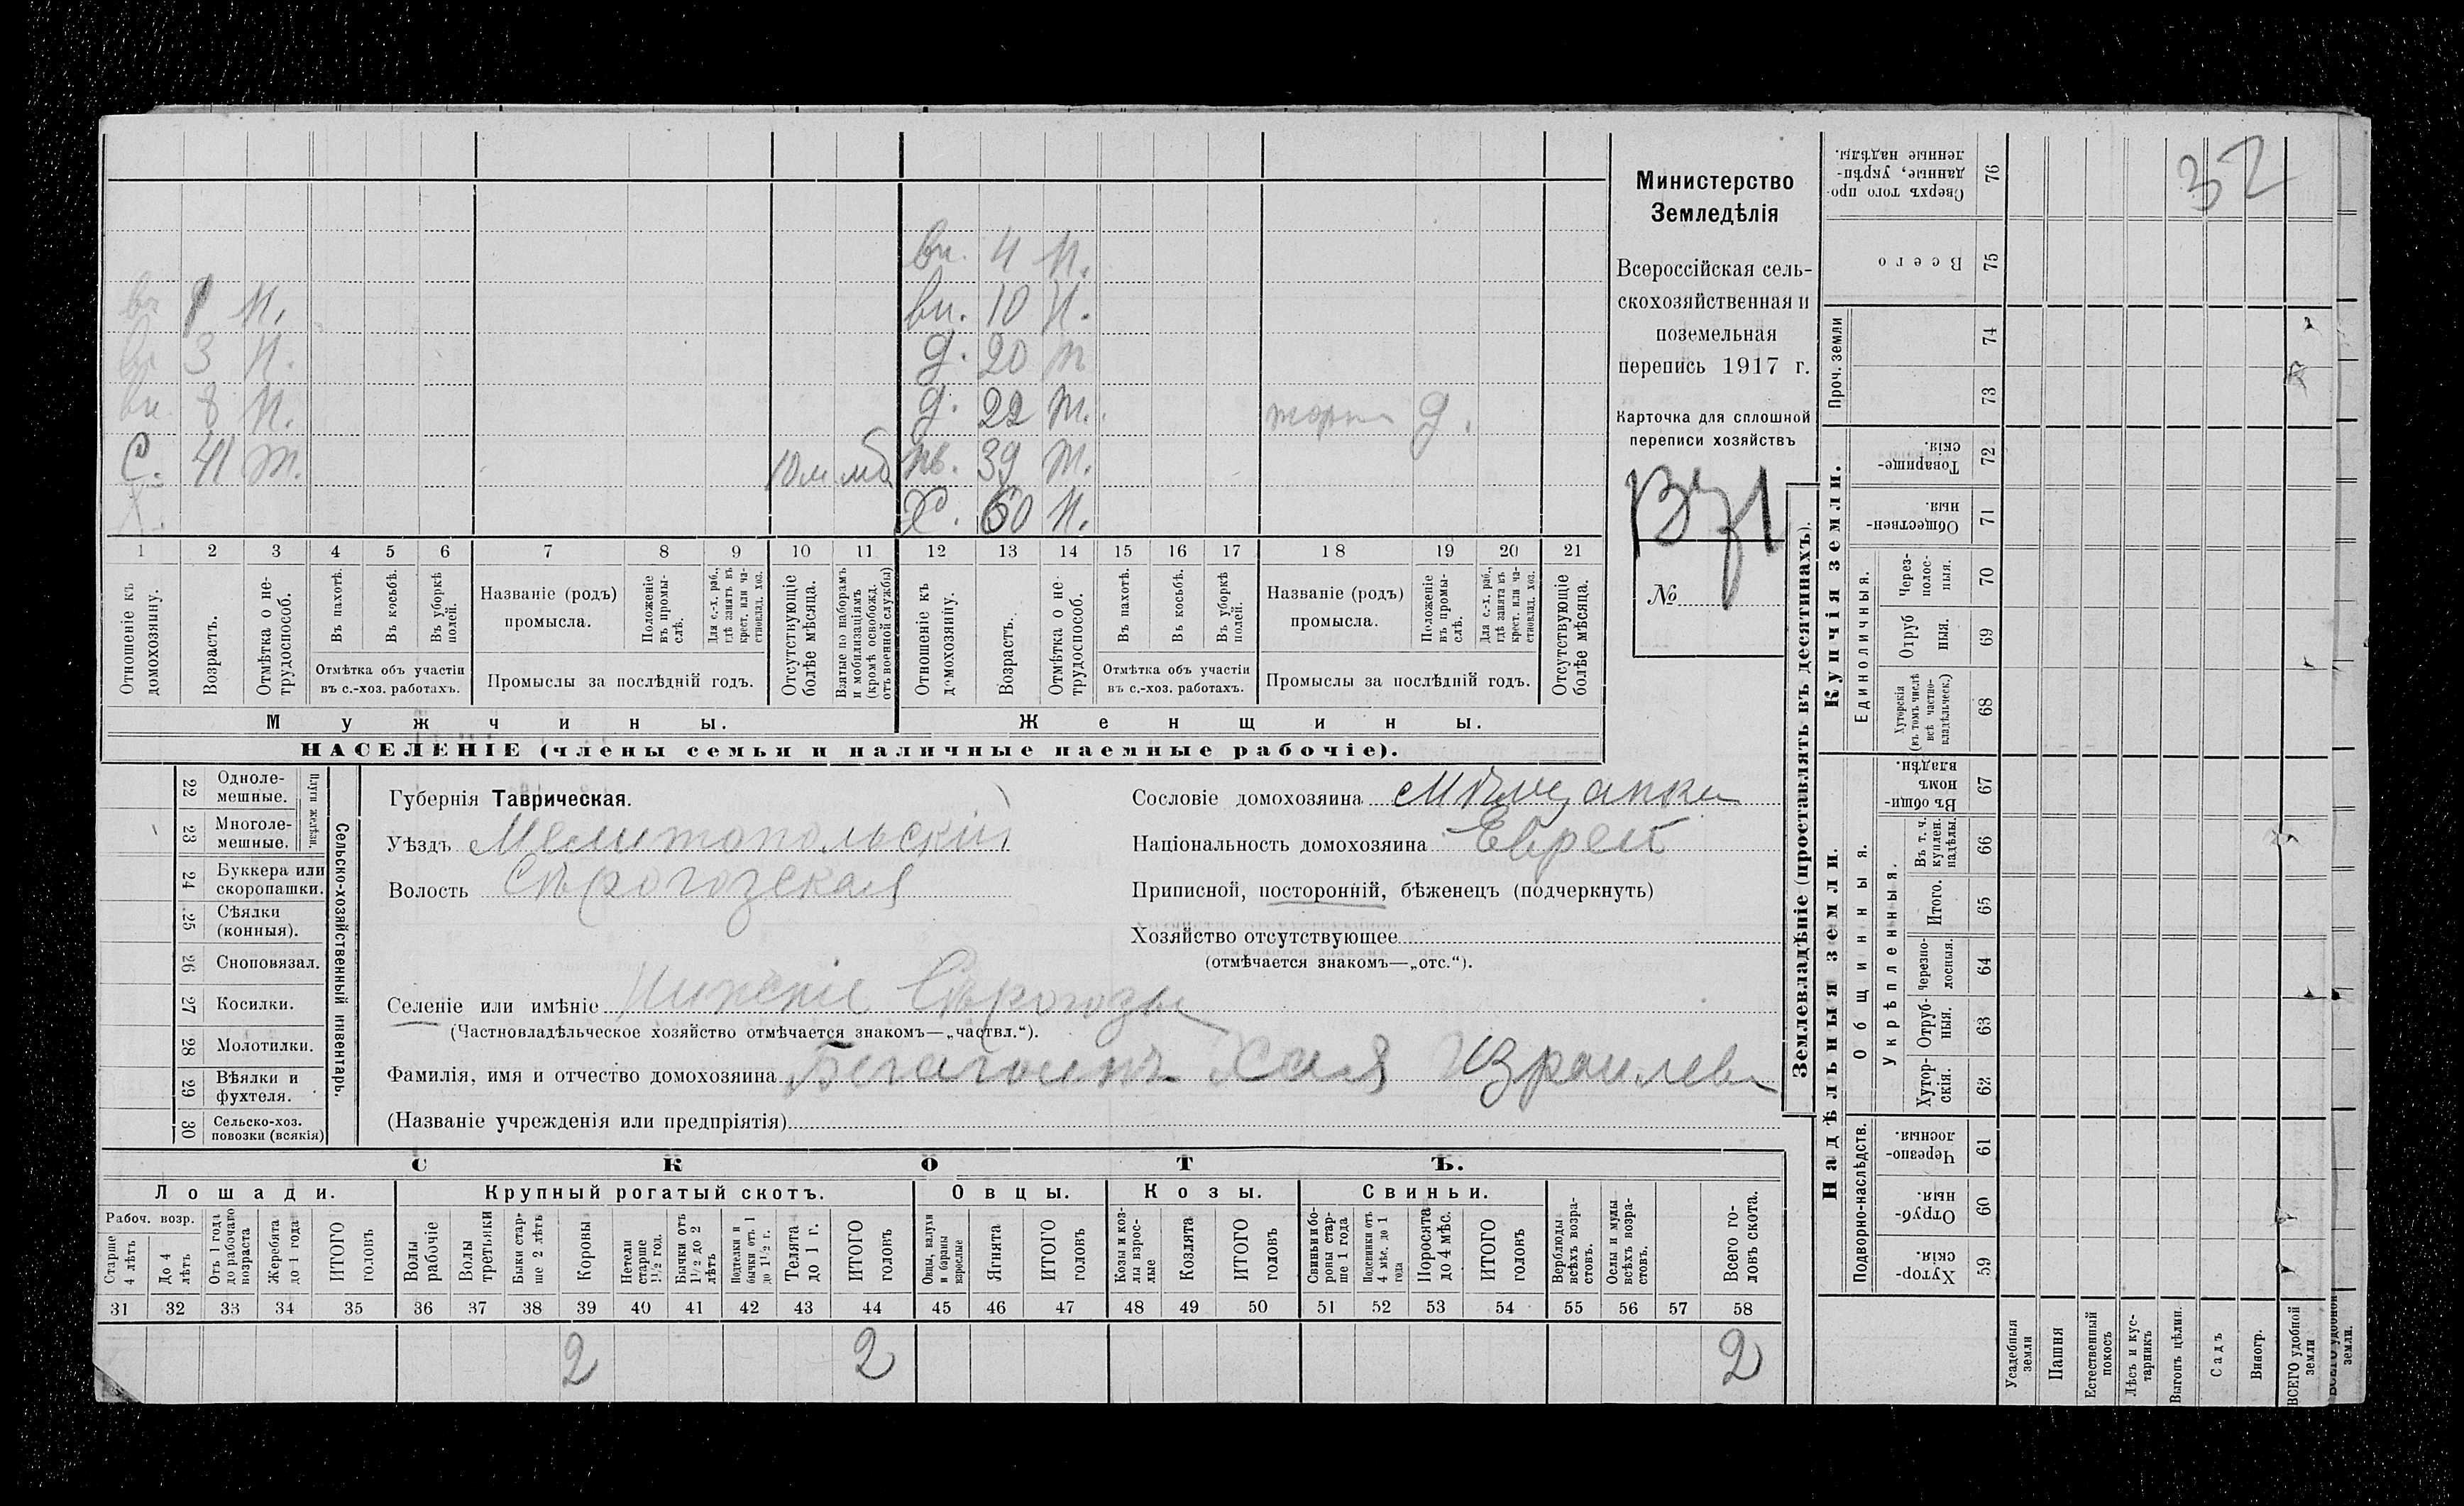 вн. 4 н.
вн. 1 н. вн. 10 н.
вн. 3 н. д. 20 т
вн. 8 н. д. 22 т. торг. д.
С. 41 т. 10 м мб нв. 39 т.
Х. Х. 60 н.
1 2 3 4 5 6 7 8 9 10 11 12 13 14 15 16 17 18 19 20 21
Отношеніе къ домохозяину.
Возрастъ.
Отмѣтка о не-трудоспособ.
Въ пахотѣ.
Въ косьбѣ.
Въ уборкѣ полей.
Отмѣтка объ участіи въ с.-хоз. работахъ.
Названіе (родъ) промысла.
Положеніе въ промы-слѣ.
Для с.-х. раб., гдѣ занятъ въ крест. или ча-стновлад. хоз.
Промыслы за послѣдній годъ.
Отсутствующіе болѣе мѣсяца.
Взятые по наборамъ и мобилизаціямъ (кромѣ освобожд. отъ военной службы)
Отношеніе къ домохозяину.
Возрастъ.
Отмѣтка о не-трудоспособ.
Въ пахотѣ.
Въ косьбѣ.
Въ уборкѣ полей.
Отмѣтка объ участіи въ с.-хоз. работахъ.
Названіе (родъ) промысла.
Положеніе въ промы-слѣ.
Для с.-х. раб., гдѣ занята въ крест. или ча-стновлад. хоз.
Промыслы за послѣдній годъ.
Отсутствующіе болѣе мѣсяца.
Мужчины. Женщины.
НАСЕЛЕНІЕ (члены семьи и наличные наемные рабочіе).
Министерство
Земледѣлія
Всероссійская сель-
скохозяйственная и
поземельная
перепись 1917 г.
Карточка для сплошной
переписи хозяйствъ
№
22 Одноле-мешные.
23 Многоле-мешные.
Плуги желѣзн.
24 Буккера или скоропашки.
25 Сѣялки (конныя).
26 Сноповязал.
27 Косилки.
28 Молотилки.
29 Вѣялки и фухтеля.
30 Сельско-хоз. повозки (всякія)
Сельско-хозяйственный инвентарь.
Губернія Таврическая.
Уѣздъ Мелитопольскій
Волость Сѣрогозская
Сословіе домохозяина Мѣщанка
Національность домохозяина Еврей
Приписной, посторонній, бѣженецъ (подчеркнуть)
Хозяйство отсутствующее
(отмѣчается знакомъ—„отс.“).
Селеніе или имѣніе Нижніе Сѣрогозы
(Частновладѣльческое хозяйство отмѣчается знакомъ—„частвл.“).
Фамилія, имя и отчество домохозяина Хая Израилев
(Названіе учрежденія или предпріятія)
СКОТЪ.
Лошади. Крупный рогатый скотъ. Овцы. Козы. Свиньи.
Рабоч. возр.
Старше 4 лѣтъ
До 4 лѣтъ
Отъ 1 года до рабочаго возраста
Жеребята до 1 года
ИТОГО головъ
Волы рабочіе
Волы третьяки
Быки стар-ше 2 лѣтъ
Коровы
Нетели старше 1½ год.
Бычки отъ 1½ до 2 лѣтъ
Подтелки и бычки отъ 1 до 1½ г.
Телята до 1 г.
ИТОГО головъ
Овцы, валухи и бараны взрослые
Ягнята
ИТОГО головъ
Козы и коз-лы взрос-лые
Козлята
ИТОГО головъ
Свиньи и бо-ровы стар-ше 1 года
Подсвинки отъ 4 мѣс. до 1 года
Поросята до 4 мѣс.
ИТОГО головъ
Верблюды всѣхъ возра-стовъ.
Ослы и мулы всѣхъ возра-стовъ.
Всего го-ловъ скота.
31 32 33 34 35 36 37 38 39 40 41 42 43 44 45 46 47 48 49 50 51 52 53 54 55 56 57 58
2 2 2
Землевладѣніе (проставлять въ десятинахъ).
32
Сверхъ того про-данные, укрѣп-ленные надѣлы. 76
Всего 75
Проч. земли 74
73
Купчія земли.
Товарище-скія. 72
Обществен-ныя. 71
Единоличныя.
Через-полос-ныя. 70
Отруб ныя. 69
Хуторскія (въ томъ числѣ всѣ частно-владѣльческ.) 68
Надѣльныя земли.
Общинныя.
Въ общин-номъ владѣн. 67
Укрѣпленныя.
Въ т. ч. куплен. надѣлы. 66
Итого. 65
Черезпо-лосныя. 64
Отруб-ныя. 63
Хутор-скія. 62
Подворно-наслѣдств.
Черезпо-лосныя. 61
Отруб-ныя. 60
Хутор-скія. 59
Усадебныя земли
Пашня
Естественный покосъ
Лѣсъ и кус-тарникъ
Выгонъ цѣлин.
Садъ
Виногр.
ВСЕГО удобной земли
ВСЕГО удобной земли.